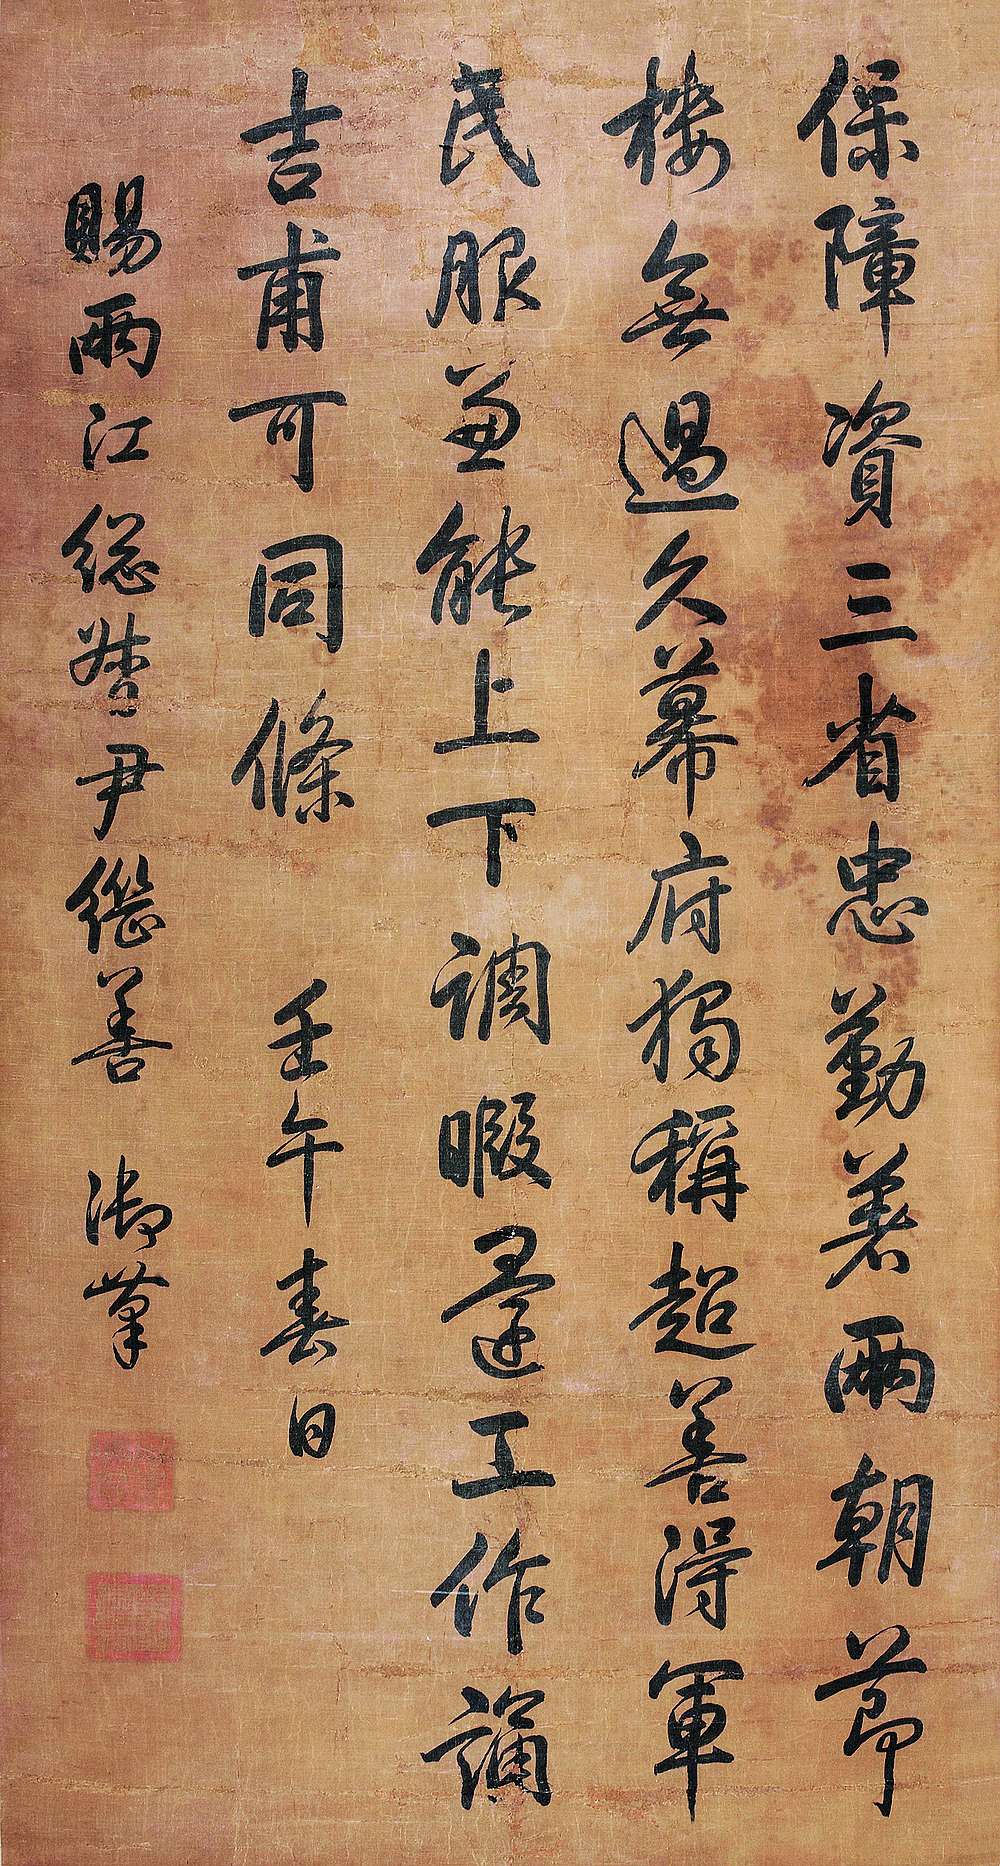 保障資三省忠勤著兩朝節
樓無過久幕府獨稱超善得軍
民服兼能上下調暇還工作誦
吉甫可同條　壬午春日
賜兩江總督尹繼善　御筆